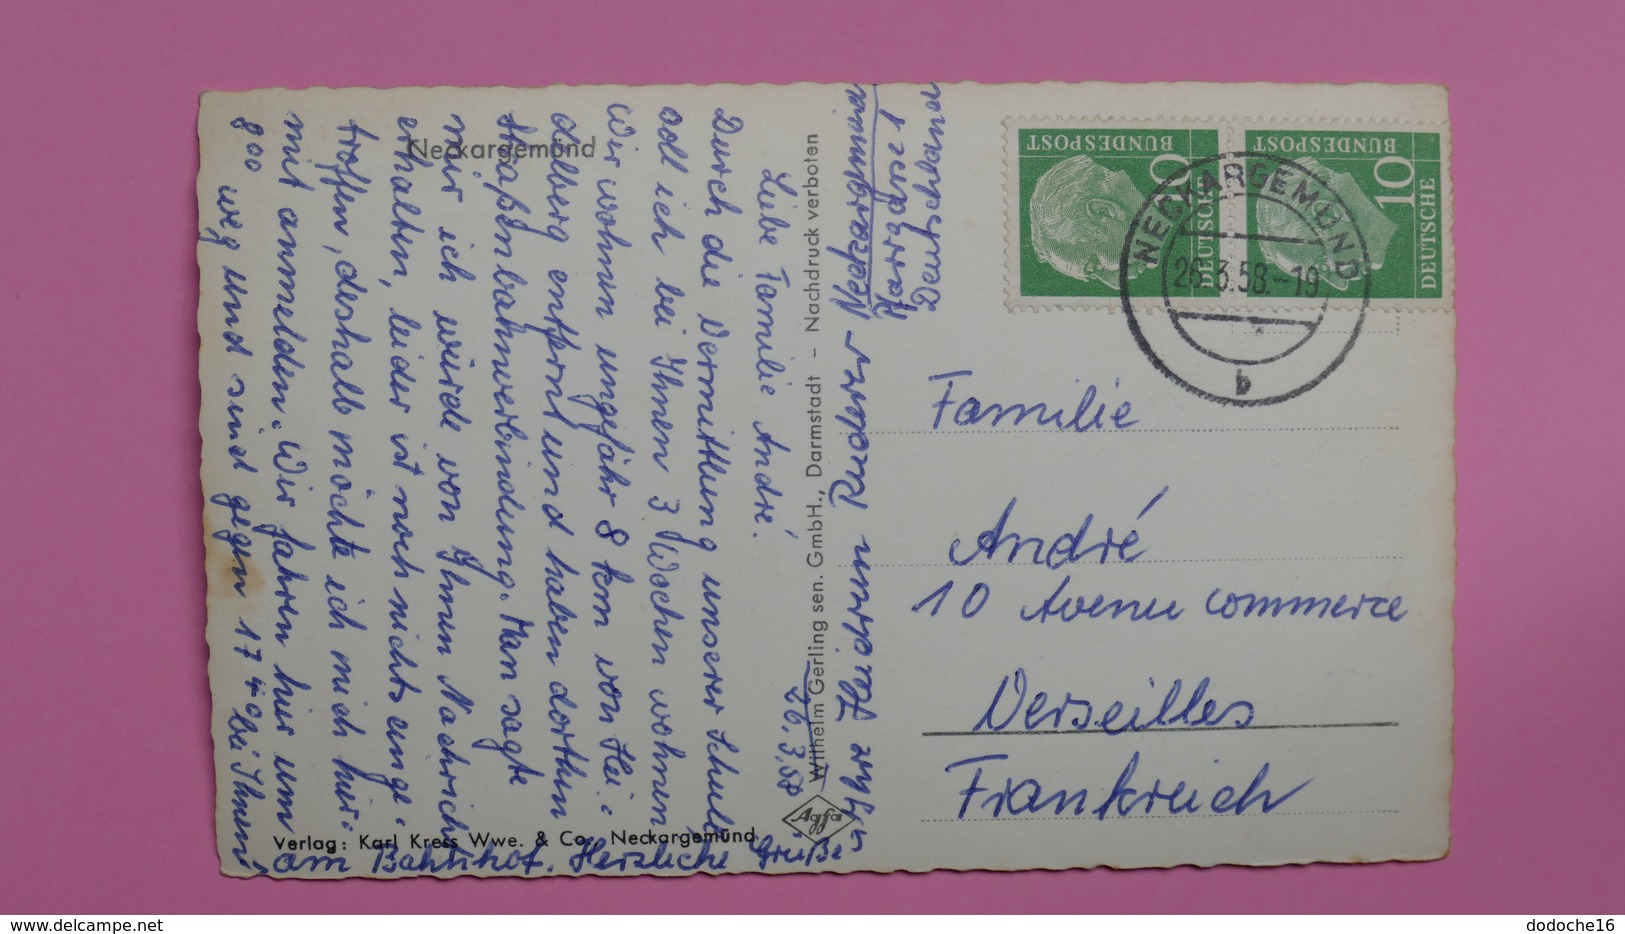 26.3.58
Liebe Familie André.
Durch die Vermittlung unserer Schule
soll ich bei Ihnen 3 Wochen wohnen
Wir wohnen ungefähr 8 km von Hei-
delberg entfernt und haben dorthin
Straßenbahnverbindung. Man sagte
mir ich würde von Ihnen Nachricht
erhalten, leider ist noch nichts einge-
troffen, deshalb möchte ich mich hier-
mit anmelden. Wir fahren hier um
8 00 weg und sind gegen 17 40 bei Ihnen
am Bahnhof. Herzliche Grüße
Ihre Heidrun Ruderer
Neckargmünd
Deutschland
Neckargemünd
Verlag: Karl Kress Wwe. & Co., Neckargemünd
Agfa
Wilhelm Gerling sen. GmbH., Darmstadt – Nachdruck verboten
DEUTSCHE
BUNDESPOST
10
DEUTSCHE
BUNDESPOST
10
NECKARGEMÜND
26.3.58.-19
b
Familie
André
10 Avenu commerce
Verseilles
Frankreich
www.delcampe.net
dodoche16